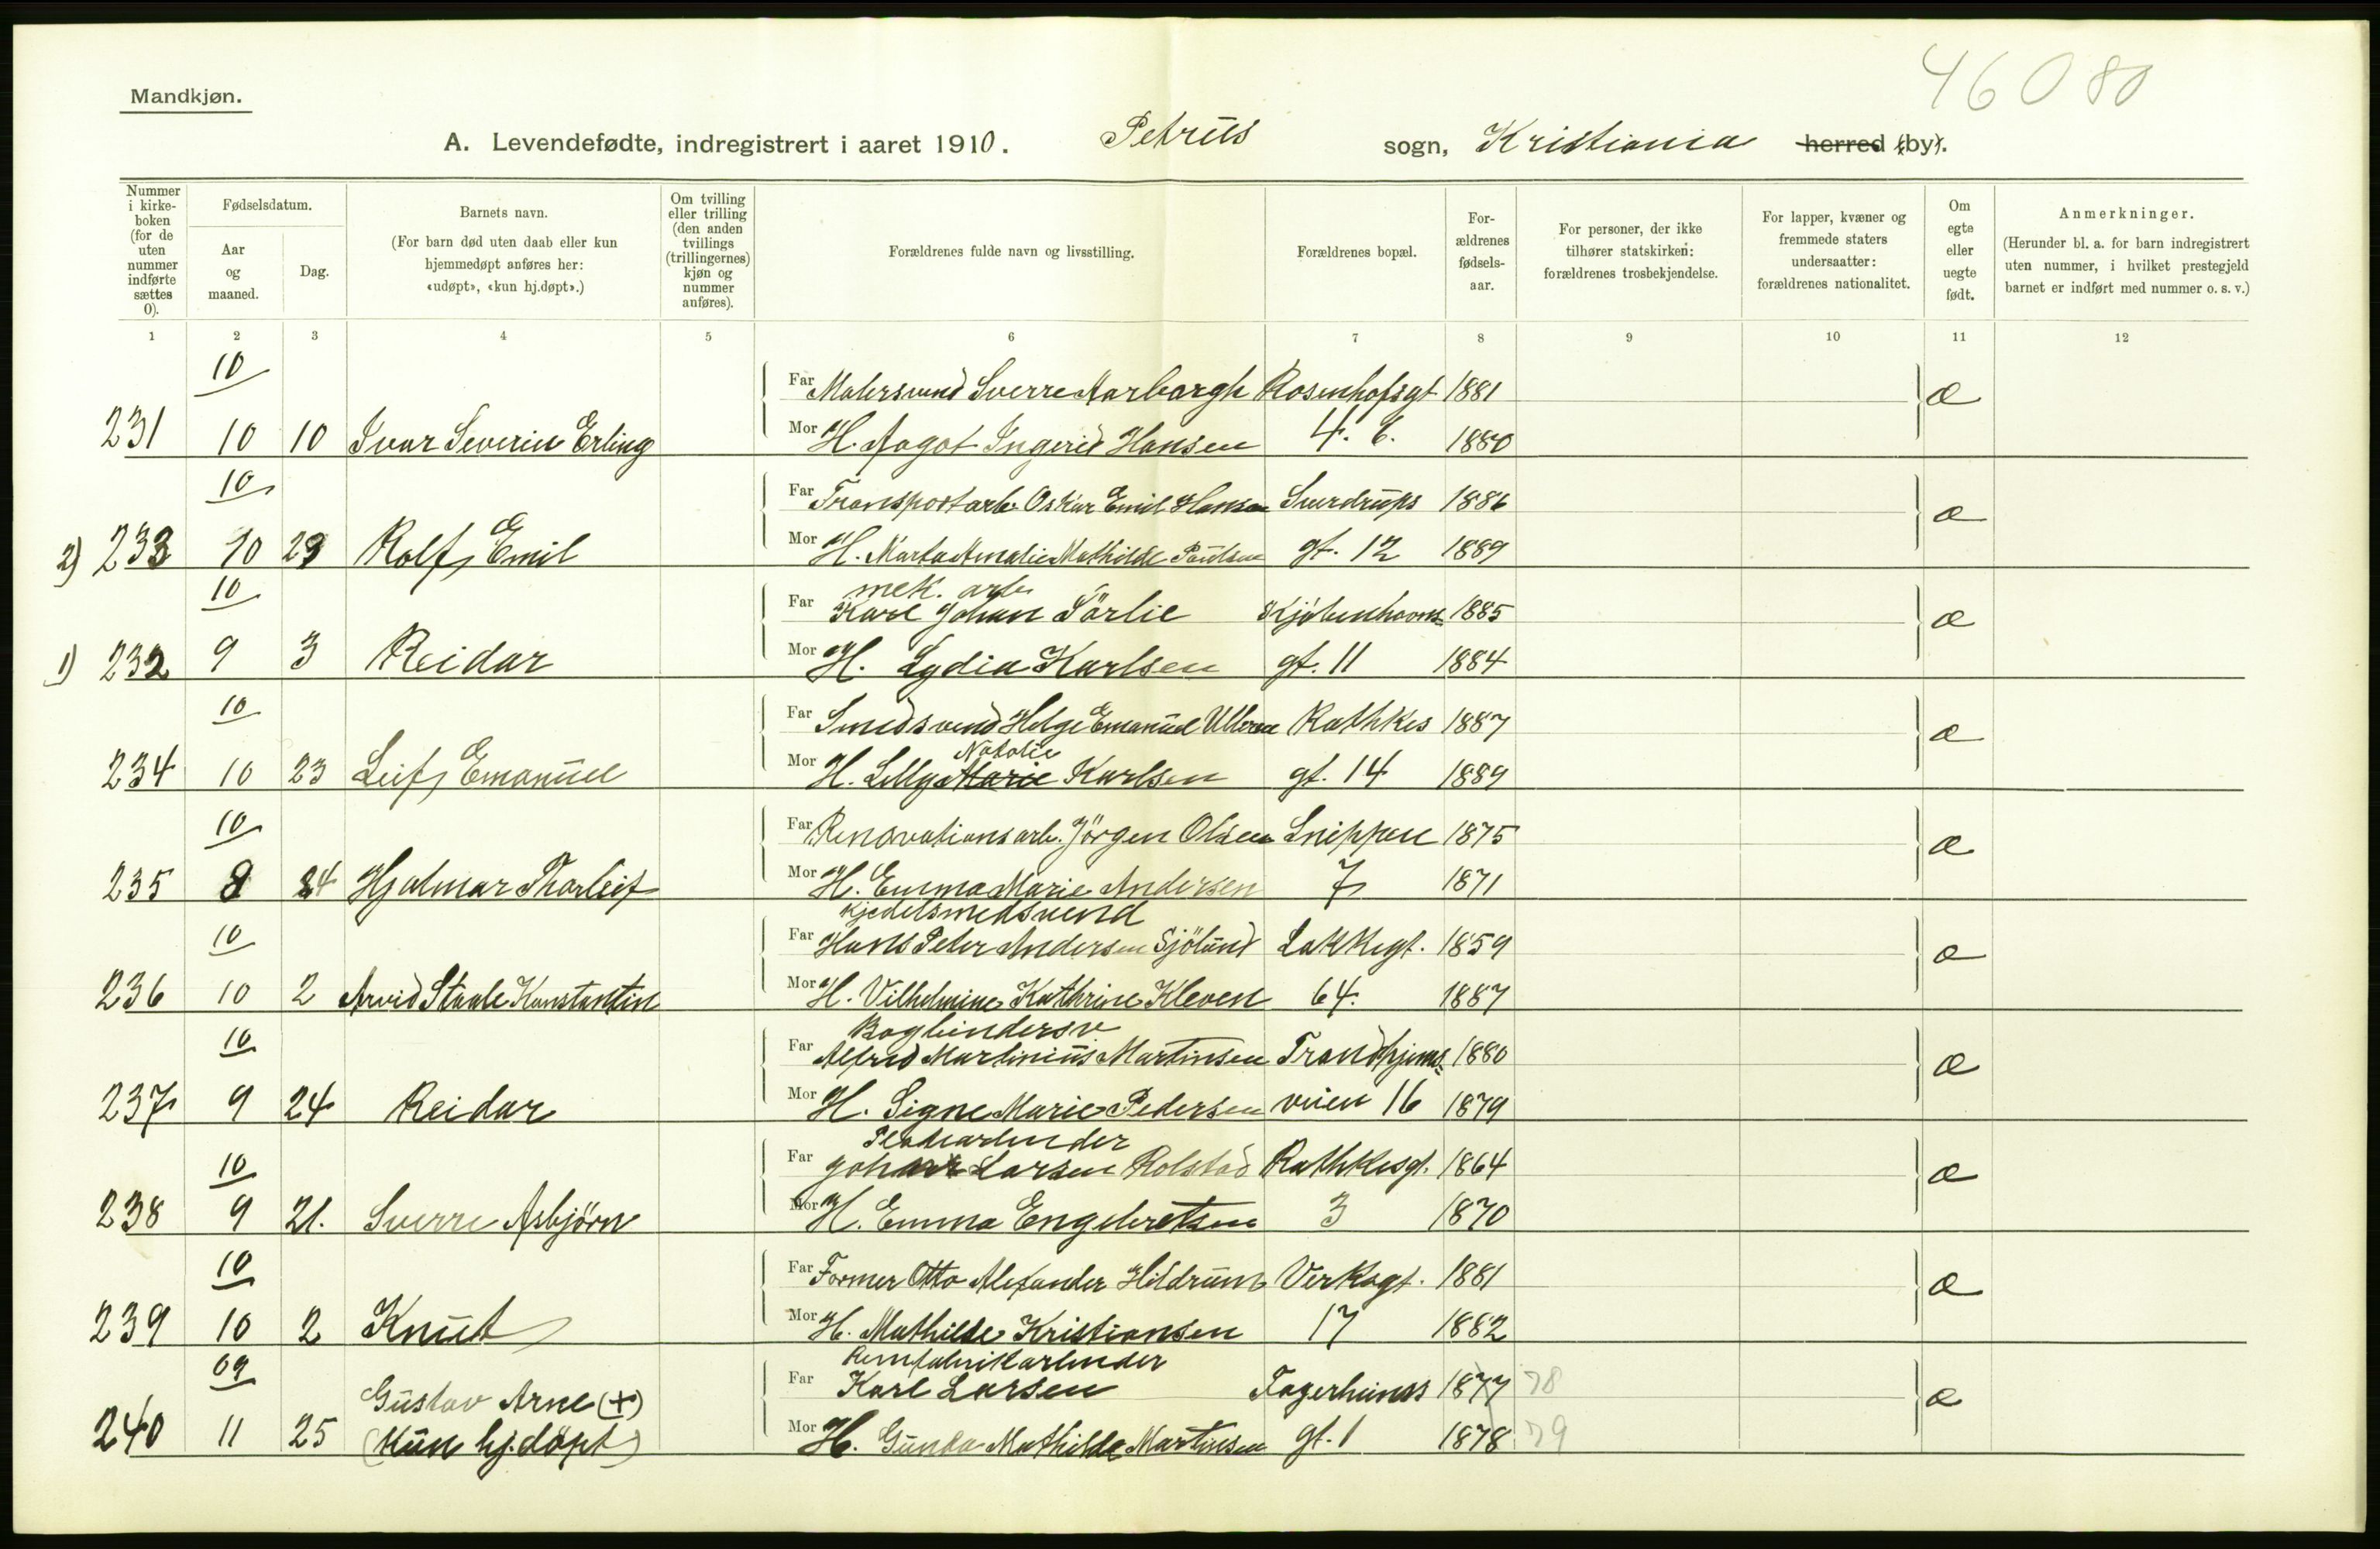 46080
Mandkjøn.
A. Levendefødte, indregistrert i aaret 1910. Petrus sogn, Kristiania herred (by).
Nummer i kirkeboken (for de uten nummer indførte sættes 0).
Fødselsdatum.
Aar og maaned.
Dag.
Barnets navn.
(For barn død uten daab eller kun hjemmedøpt anføres her: «udøpt», «kun hj.døpt».)
Om tvilling eller trilling (den anden tvillings (trillingernes) kjøn og nummer anføres).
Forældrenes fulde navn og livsstilling.
Forældrenes bopæl.
Forældrenes fødselsaar.
For personer, der ikke tilhører statskirken: forældrenes trosbekjendelse.
For lapper, kvæner og fremmede staters undersaatter: forældrenes nationalitet.
Om egte eller uegte født.
Anmerkninger.
(Herunder bl. a. for barn indregistrert uten nummer, i hvilket prestegjeld barnet er indført med nummer o. s. v.)
1 2 3 4 5 6 7 8 9 10 11 12
10
Far Malersvend Sverre Aarbargh Rosenhofsgt 1881 æ
231 10 10 Ivar Severin Erling Mor H. Aagot Ingerid Hansen 4. b. 1880
10
Far Transportarb. Oskar Emil Hansen Sverdrups 1886 æ
2) 233 10 29 Rolf Emil Mor H. Marta Amalie Mathilde Paulsen gt. 12 1889
10 mek. arb.
Far Karl Johan Sörlie Kjøbenhavns- 1885 æ
1) 232 9 3 Reidar Mor H. Lydia Karlsen gt. 11 1884
10
Far Smedsvend Helge Emanuel Ulleren Rathkes 1887 æ
Natalie
234 10 23 Leif Emanuel Mor H. Lilly Marie Karlsen gt. 14 1889
10
Far Renovationsarb. Jörgen Olsen Snippen 1875 æ
235 8 24 Hjalmar Thorleif Mor H. Emma Marie Andersen 7 1871
Kjedelsmedsvend
10 Far Hans Peter Andersen Sjölund Lakkegt. 1859 æ
236 10 2 Arvid Staale Konstantin Mor H. Vilhelmine Kathrine Kleven 64. 1887
Bogbindersv.
10 Far Alfred Martinius Martinsen Trondhjems- 1880 æ
237 9 24 Reidar Mor H. Signe Marie Pedersen veien 16 1879
10 Far Johan Larsen Rolstad Rathkesgt. 1864 æ
238 9 21. Sverre Asbjörn Mor H. Emma Engebretsen 3 1870
10
Far Former Otto Alexander Hildrum Verksgt. 1881 æ
239 10 2 Knut Mor H. Mathilde Kristiansen 17 1882
09 Remfabrikarbeider
Gustav Arne (+) Far Karl Larsen Fagerheims 1877 78 æ
240 11 25 (Kun hj.döpt) Mor H. Gunda Mathilde Martinsen gt. 1 1878 79